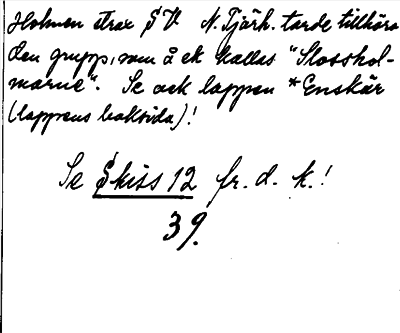 Holmen strax S V. N. Tjärh. torde tillhöra
den grupp, som å ek kallas "Slosshol-
marne". Se ock lappen *Enskär
(lappens baksida)!
Se Skiss 12 fr. d. k.!
39.